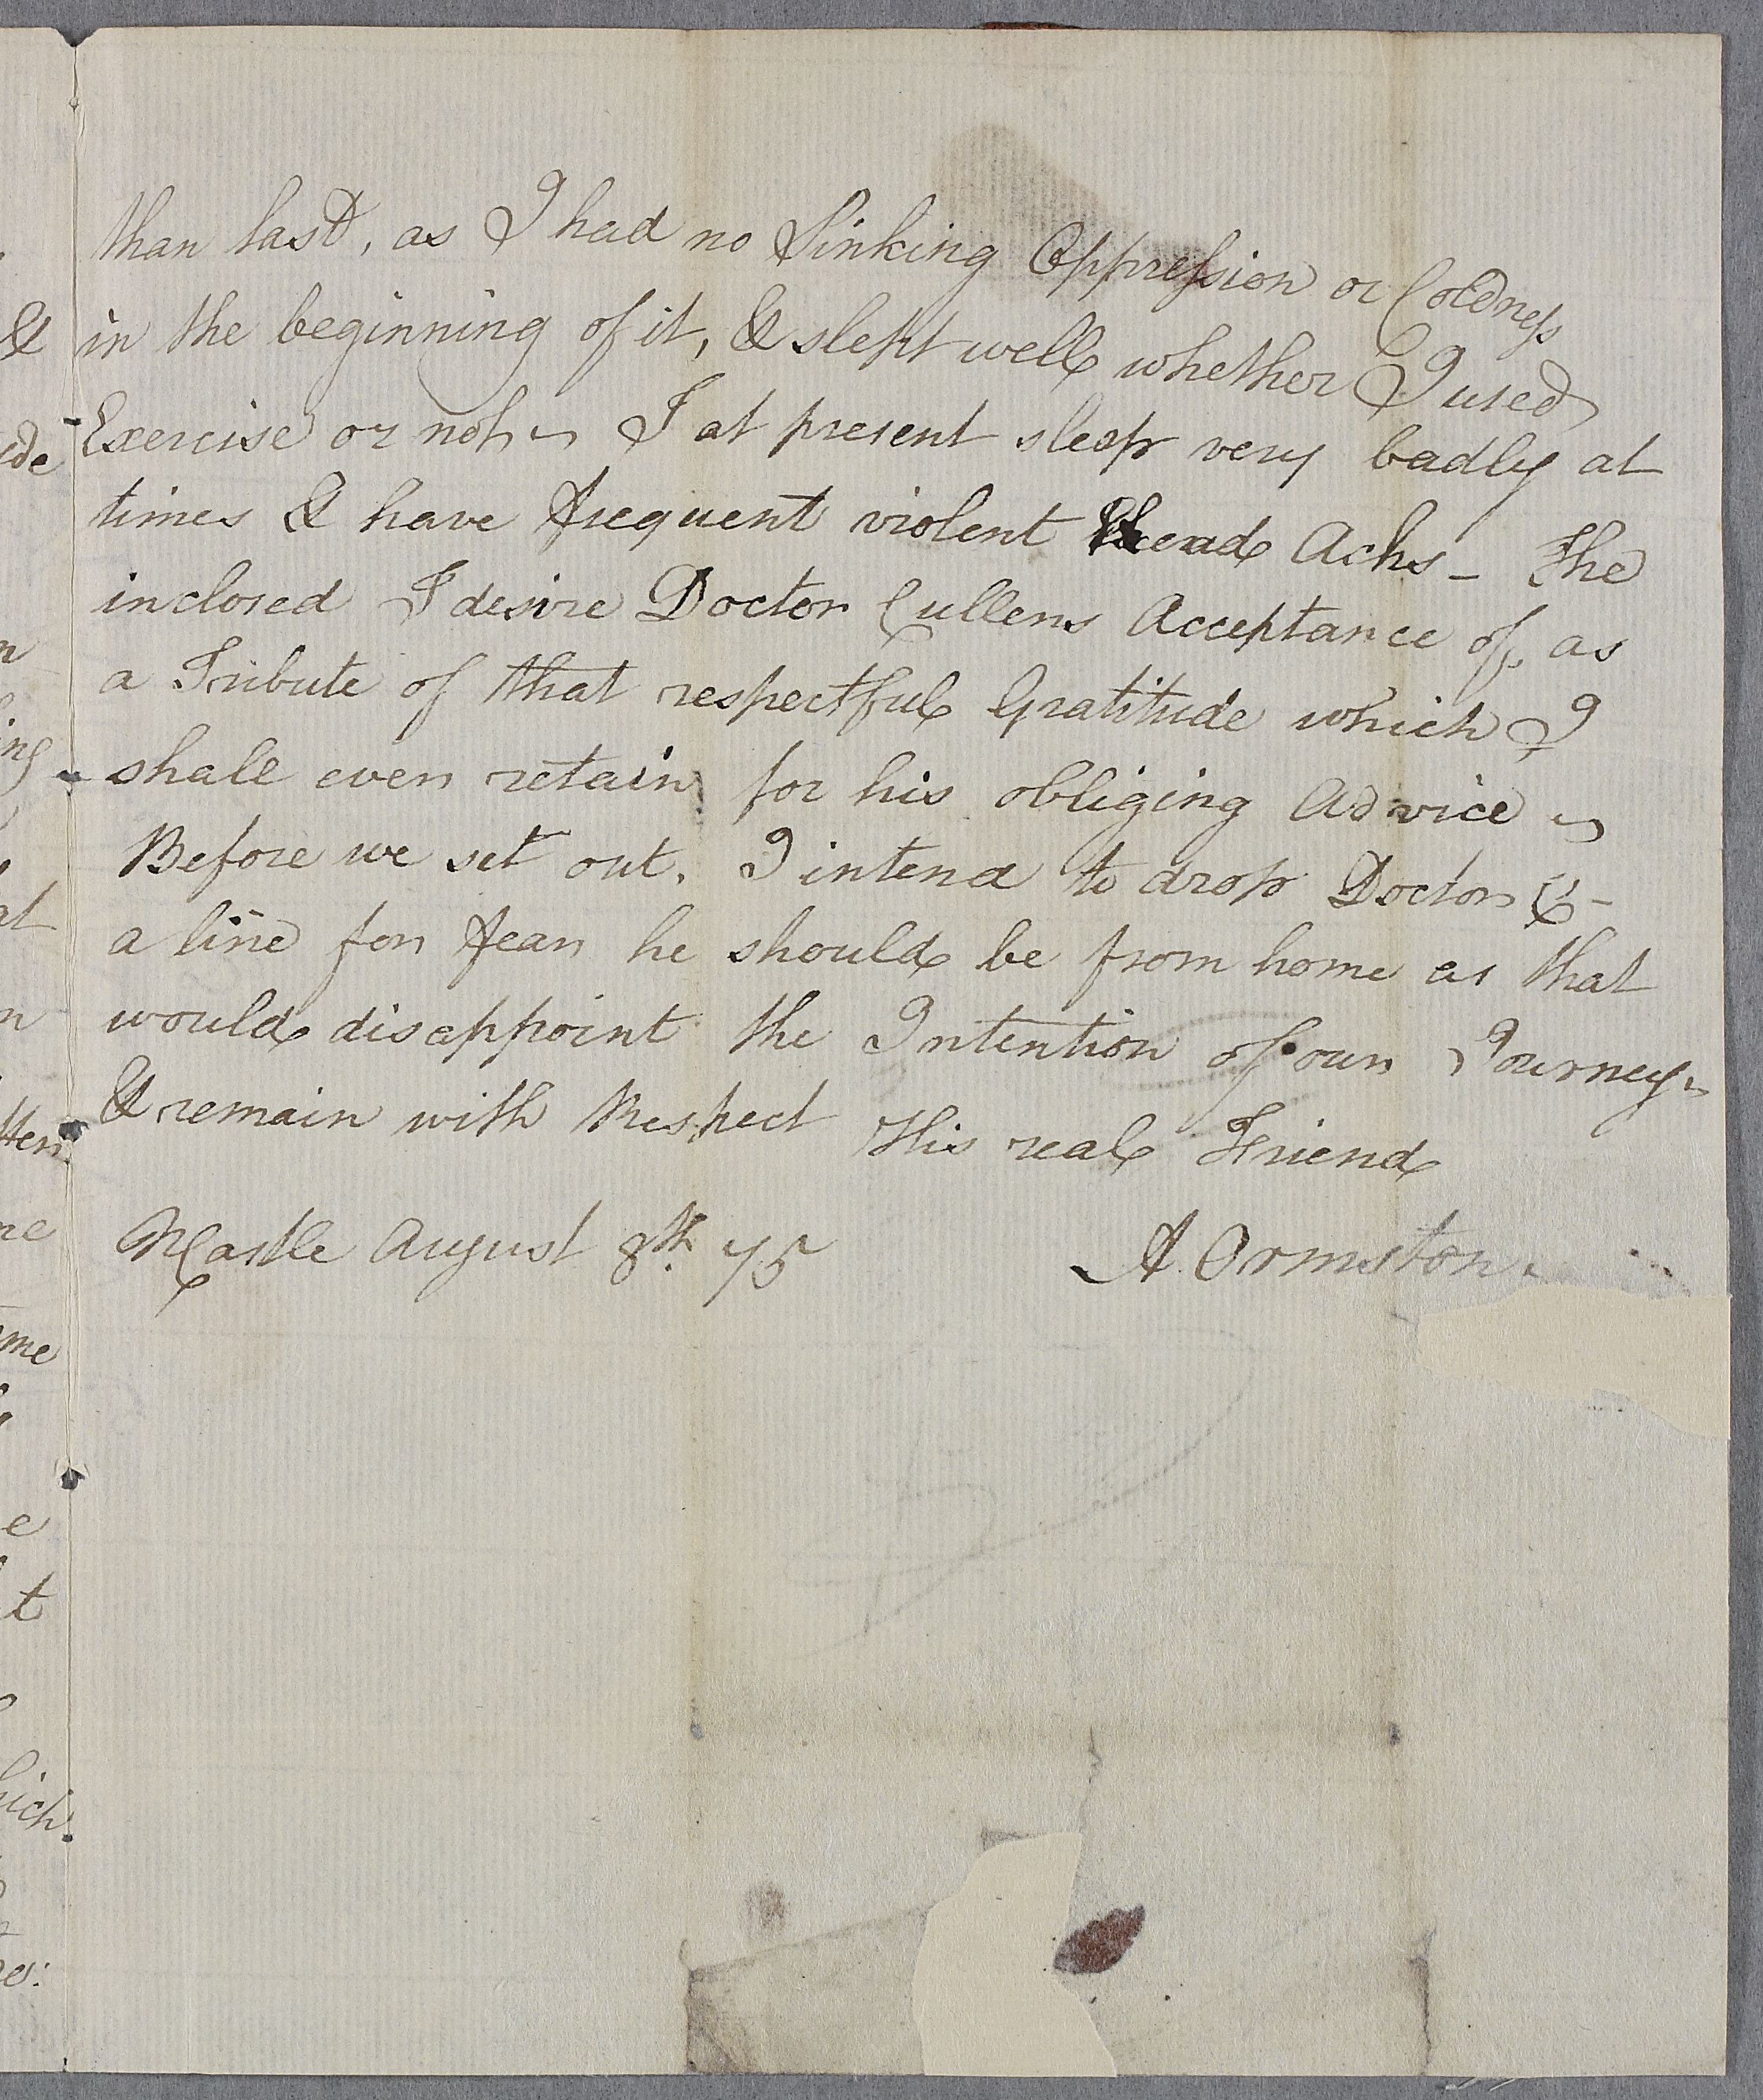 than last, as I had no Sinking Oppression or Coldness
in the beginning of it, & slept well whether I used
Exercise or not ~ I at present sleep very badly at
times & have frequent violent Head Achs - The
inclosed I desire Doctor Cullens Acceptance of, as
a Tribute of that respectful Gratitude which I
shall ever retain for his obliging Advice ~
Before we set out, I intend to drop Doctor C-
a line for fear he should be from home as that
would disappoint the Intention of our Journey ~
& remain with Respect His real Friend
NCastle August 8th. 75
A Ormston.